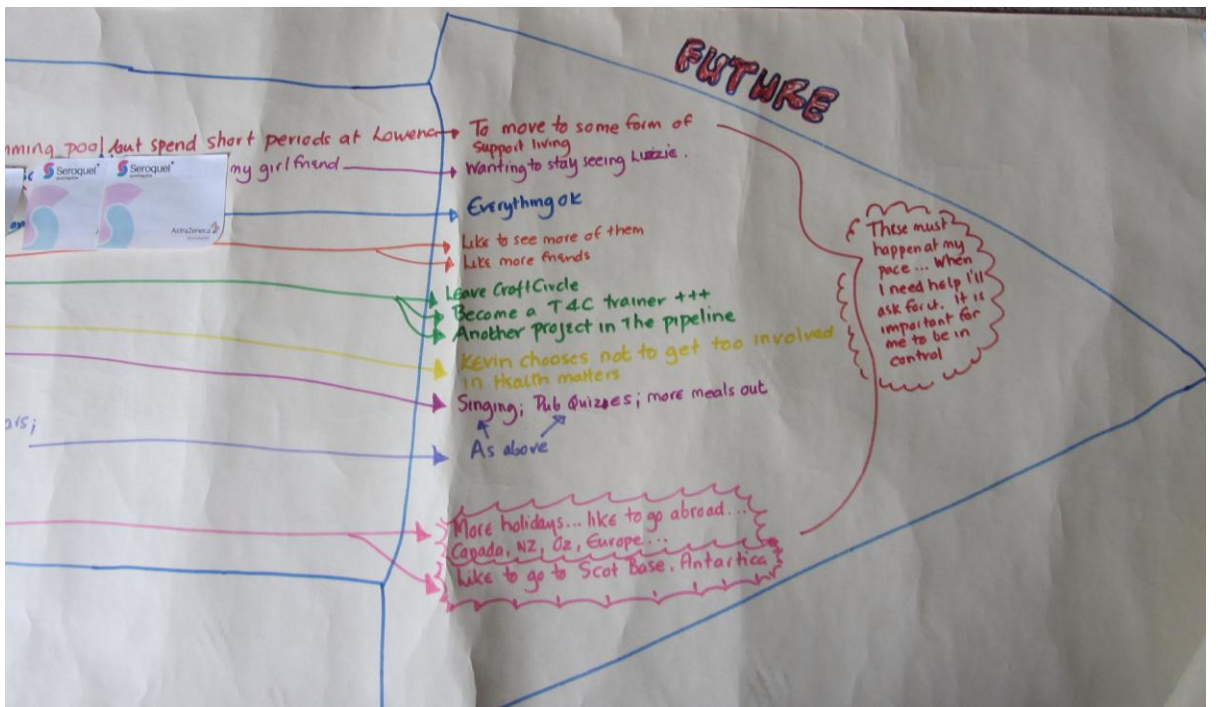 FUTURE
mming pool but spend short periods at Lowena
To move to some form of
support living
my girlfriend
Wanting to stay seeing Lizzie.
Seroquel
Seroquel
AstraZeneca
Everything ok
Like to see more of them
Like more friends
Leave Craft Circle
Become a T4C trainer +++
Another project in The pipeline
Kevin chooses not to get too involved
in Health matters
Singing; Pub Quizzes; more meals out
As above
More holidays... like to go abroad...
Canada, NZ, Oz, Europe...
Like to go to Scot Base, Antartica
These must
happen at my
pace... When
I need help I'll
ask for it. It is
important for
me to be in
control